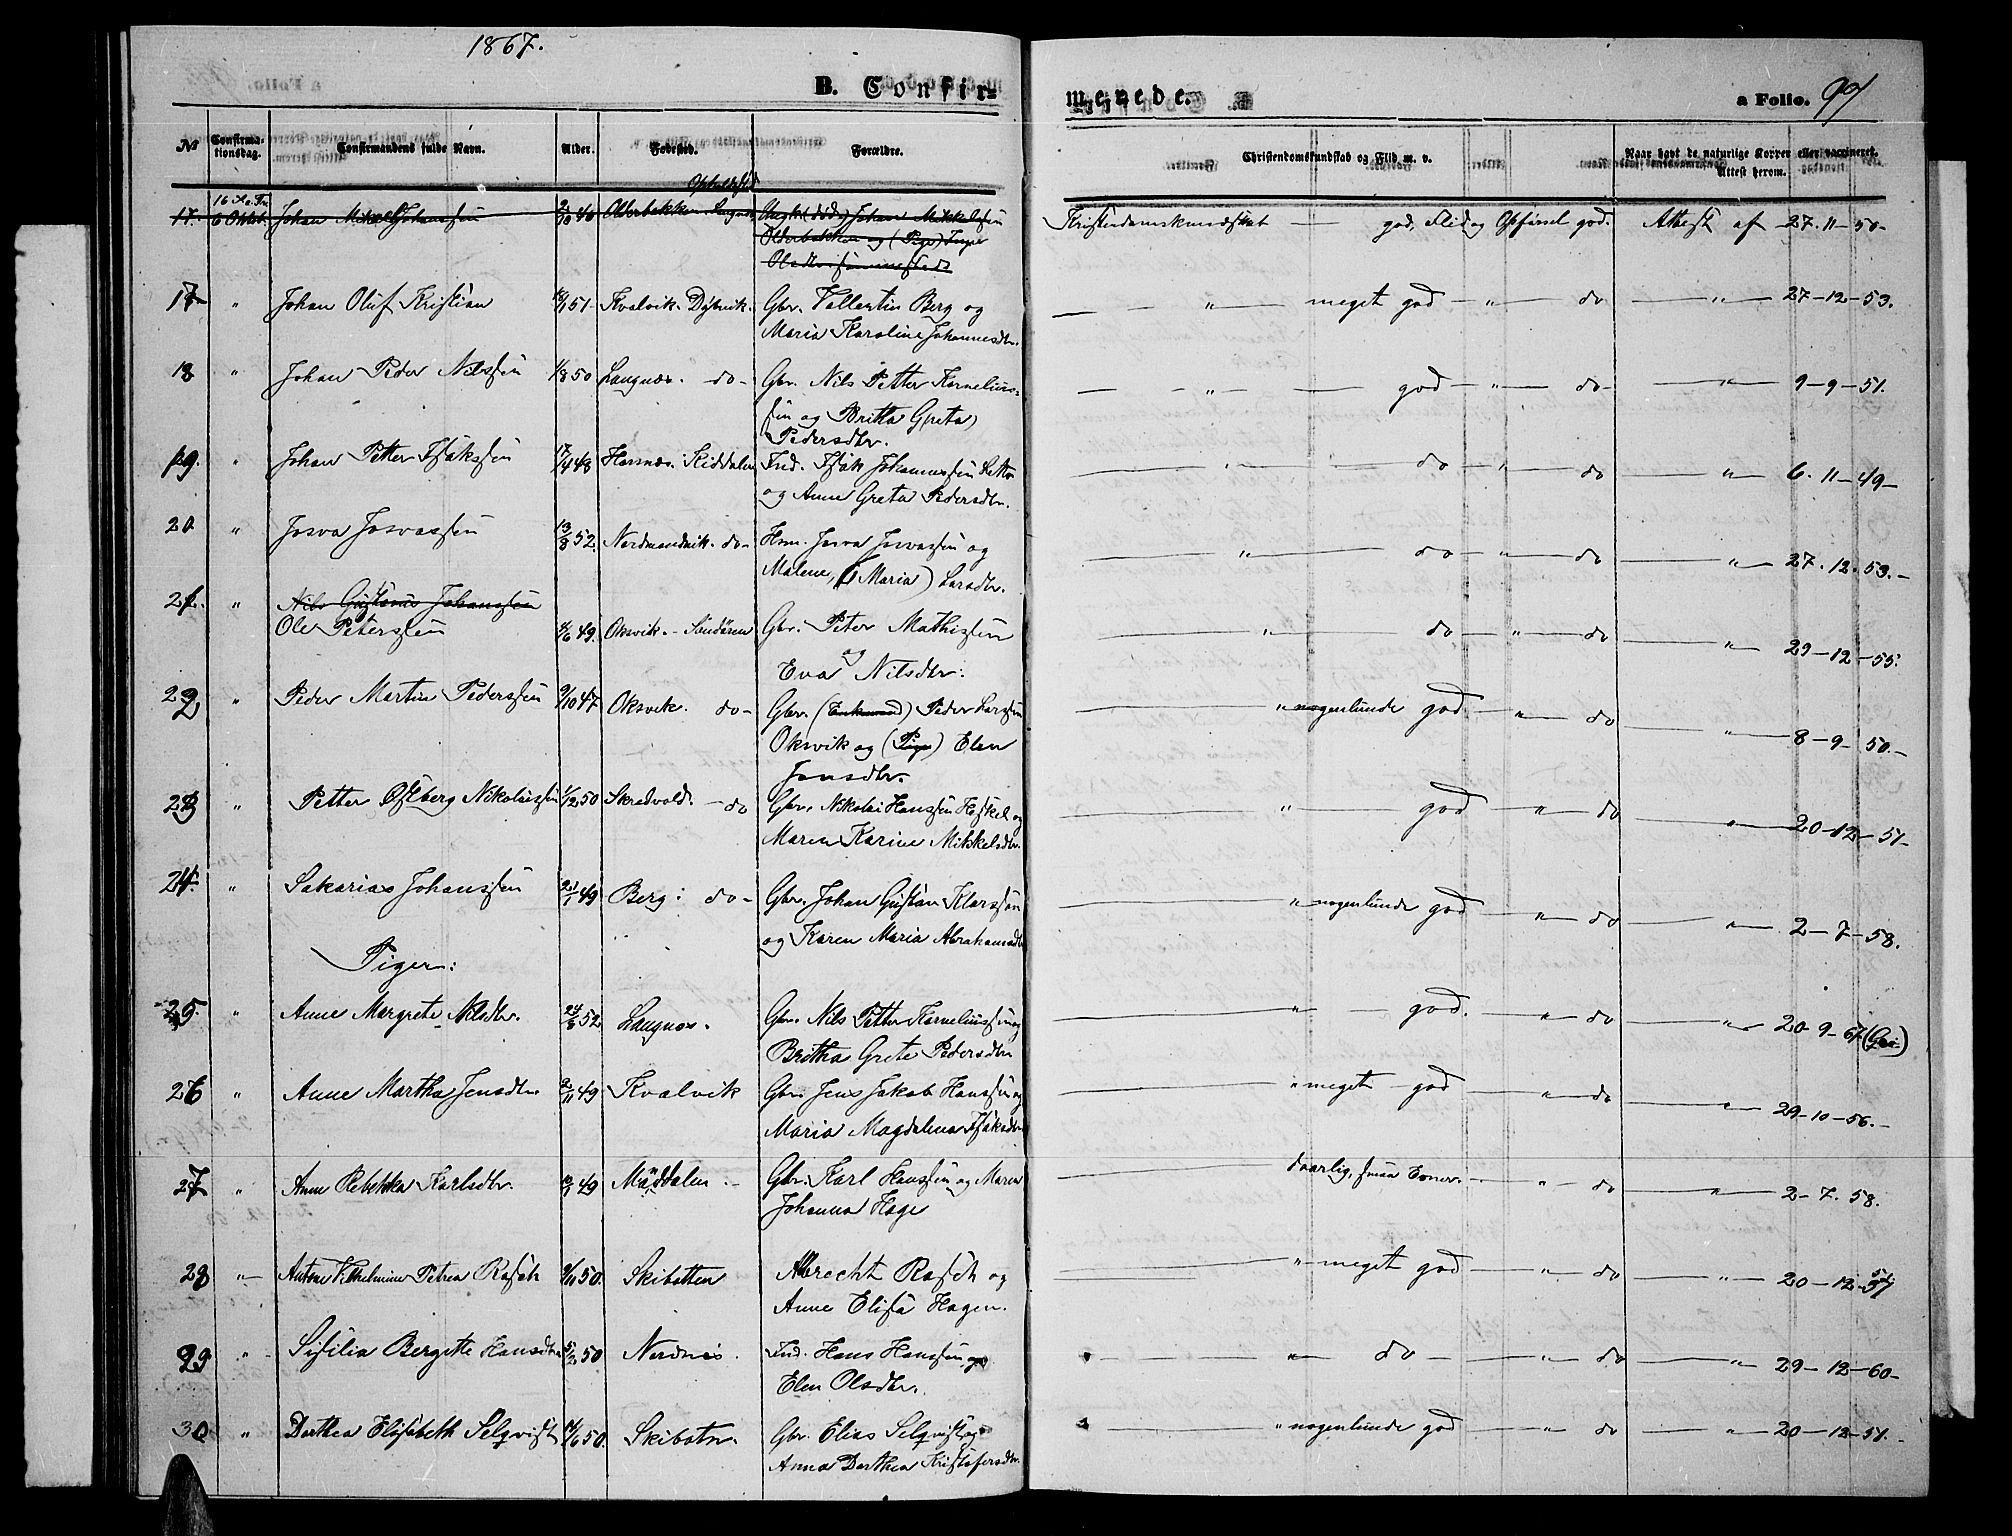 1867.
B. Confir=
№
Confirma-
tionsdag.
Confirmandens fulde Navn.
Alder.
Fødested.
Opholdssted
Forældre.
17. 16 S. e. Tr. 6 Oktob. Johan Mikkel Johanssen 2/10 46 Olderbakken Langnes Ungk (død) Johan Mikkelssen
Olderbakken og (Pige) Inger
Olsdtr sammesteds
17 " Johan Oluf Kristian 51. Kvalvik. Dybvik. Gbr. Vallentin Berg og
Maria Karoline Johannesdtr.
18 " Johan Peder Nilssen 1/8 50 Langnes. do- Gbr. Nils Petter Kornelius-
sen og Britta Greta
Pedersdtr.
19. " Johan Petter Isaksen 17/4 48 Hornnes. Skiddalen Ind. Isak Johannessen
og Anne Greta Pedersdtr.
20 " Josva Josvassen 13/8 52. Nordmandvik. do- Hsm. Josva Josvassen og
Malene, (Maria) Larsdtr.
21. " Nils Gustavus Johanssen
Ole Peterssen 4/6 49. Oksvik. - Sandøren Gbr. Peter Mathissen
og
Eva Nilsdtr:
22 " Peder Martin Pederssen 9/10 47 Oksvik. do- Gbr. (Enkemand) Peder Larssen
Oksvik og (Pige) Elen
Jonsdtr.
23 " Petter Østberg Nikolaissen 1/12 50 Skredvold. - do Gbr. Nikolai Hanssen Heskel og
Maren Karine Mikkelsdtr.
24. " Sakarias Johanssen 21/1 49 Berg: do- Gbr. Johan Gustav Klarssen
og Karen Maria Abrahamsdtr
Piger:
25. " Anne Margrete Nilsdtr. 24/8 52 Langnes. Gbr. Nils Petter Korneliussen og
Britha Grete Pedersdtr
26 " Anne Martha Jensdtr. 2/11 49 Kvalvik Gbr Jens Jakob Hanssen og
Maria Magdalena Isaksdtr
27 " Anne Rebekka Karlsdtr. 49 Müddalen.- Gbr. Karl Hanssen og Maren
Johanna Hage
28 " Antone Vilhelmine Petrea Rasch 9/11 50. Skibotten Albrecht Rasch og
Anne Elisa Hagen.
29 " Sisilia Bergette Hansdtr 5/2 50 Nordnes. Ind. Hans Hanssen og
Elen Olsdtr.
30 " Dorthea Elisabeth Selqvist 14/6 50. Skibotn. Gbr. Elias Selqvist og
Anna Dorthea Kristofersdtr.
menede.
a Folio. 99
Christendomskundskab og Flid m. v.
Naar havt de naturlige Kopper eller vaccineret.
Attest herom.
Kristendomskundskab — god, Flid og Opførsel god. Attest af 27-11-50-
— " — meget god — " — do — " — 27-12-53.
— " — god — " — do — " — 9-9-51.
— " — do — " — do — " — 6-11-49-
— " — do — " — do — " — 27.12.53.-
— " — do — " — do — " — 29-12-55.
— " nogenlunde god — " — do — " — 8-9-50.-
— " — god — " — do — " — 20-12-51-
— " nogenlunde god — " — do — " — 2-7-58.
— " — god. — " — do — " — 20-9-67
— " meget god — " — do — " — 29-10-56.-
— daarlig, — " — do — " — 2-7-58.
— " meget god — " — do — " — 20-12-51
— " — do — " — do — " — 29-12-60-
— " nogenlunde god — " — do — " — 20-12-51.-